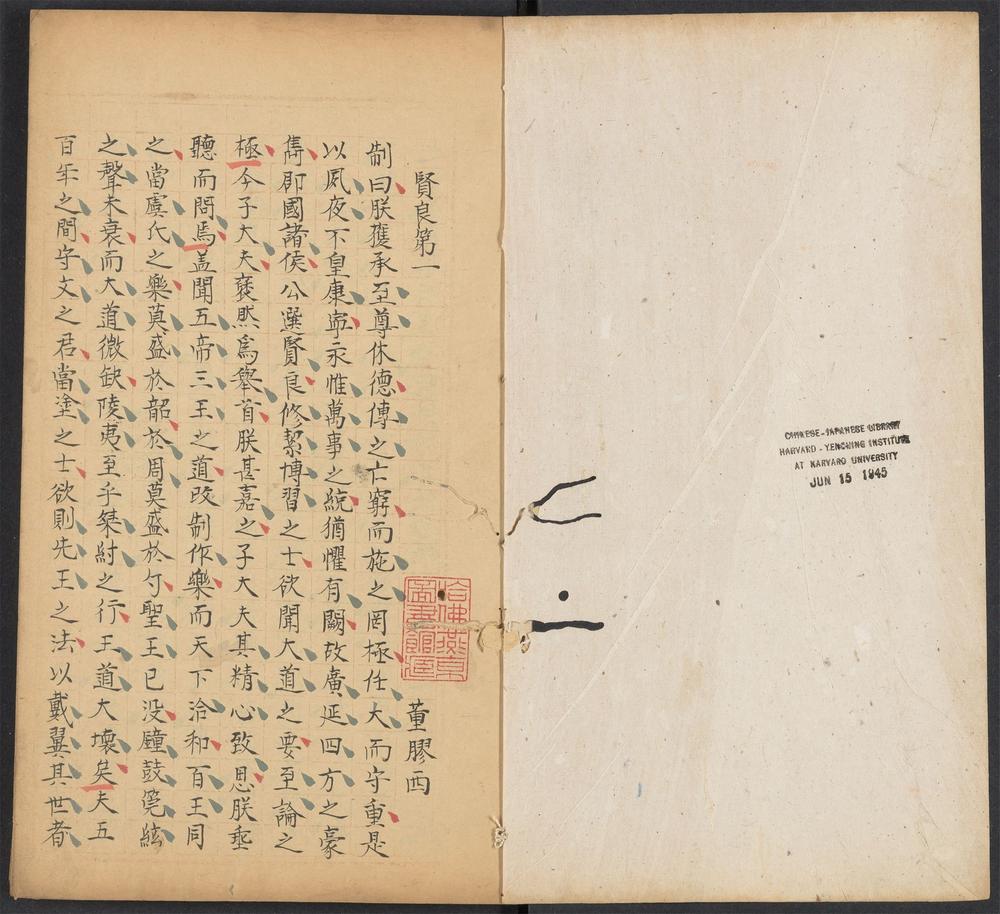 賢良第一
董膠西
制曰朕獲承至尊休德傳之亡窮而施之罔極任大而守重是
以夙夜不皇康寧永惟萬事之統猶懼有闕故廣延四方之豪
雋郡國諸侯公選賢良修絜博習之士欲聞大道之要至論之
極今子大夫襃然爲舉首朕甚嘉之子大夫其精心致思朕垂
聽而問焉盖聞五帝三王之道改制作樂而天下洽和百王同
之當虞氏之樂莫盛於韶於周莫盛於勺聖王已没鐘鼓筦絃
之聲未衰而大道微缺陵夷至乎桀紂之行王道大壞矣夫五
百年之間守文之君當塗之士欲則先王之法以戴翼其世者
哈佛燕京圖書館藏
CHINESE-JAPANESE LIBRARY
HARVARD-YENCHING INSTITUTE
AT HARVARD UNIVERSITY
JUN 15 1945